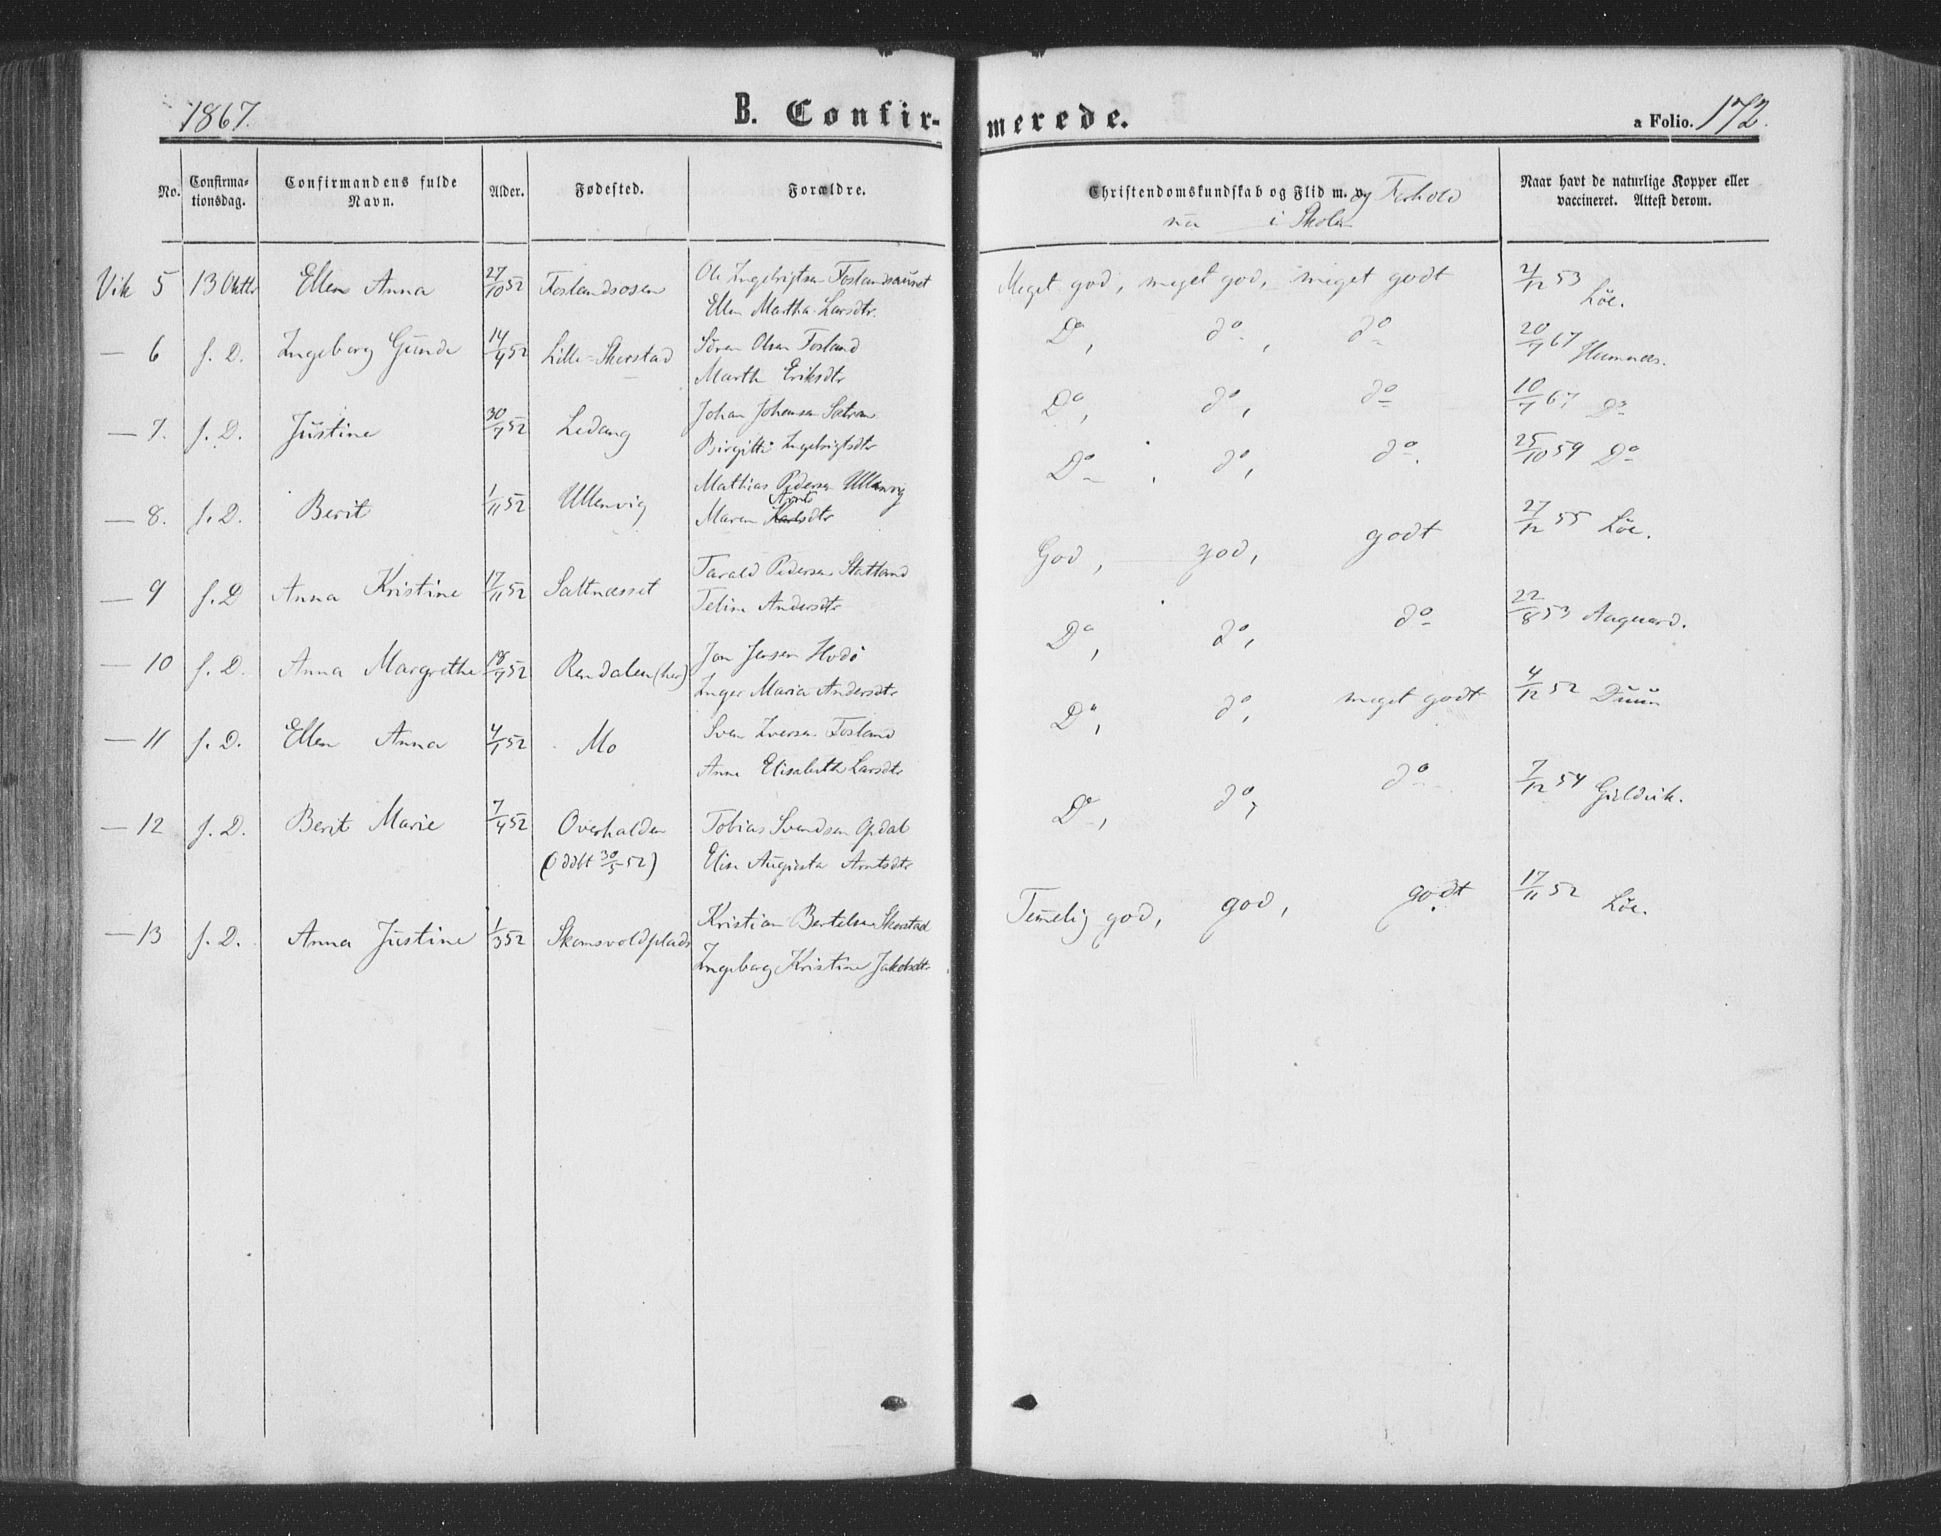 1867. B. Confir-merede. a Folio. 172.
No. Confirma-tionsdag. Confirmandens fulde Navn. Alder. Fødested. Forældre. Christendomskundskab og Flid m. v. og Forhold i Skolen Naar havt de naturlige Kopper eller vaccineret. Attest derom.
Vik 5 13 Oktbr Ellen Anna 27/10 52 Foslandsosen Ole Ingebrigtsen Foslandsaunet Meget god, meget god, meget godt 2/12 53 Löe.
Ellen Martha Larsdtr.
— 6 s. D. Ingeborg Gunde 14/9 52 Lille-Skorstad Sören Olsen Fosland Do, do, do 20/7 67 Hemnes.
Marth Eriksdtr
— 7. s. D. Justine 30/7 52 Ledang Johan Johansen Do, do, do 10/7 67 Do
Birgitte Ingebrigtsdtr
— 8. s. D. Berit 1/11 52 Ullenvig Mathias Pedersen Ullenvig Do, do, do. 25/10 59 Do
Maren Arntsdtr
— 9 s. D Anna Kristine 17/11 52 Saltnæsset Tarald Pedersen Statland God, god, godt 27/12 55 Löe.
Teline Andersdtr
— 10 s. D. Anna Margrethe 18/7 52 Rendalen (her) Jon Jensen Hodö Do, do, do 22/8 53 Aagaard.
Inger Maria Andersdtr
— 11 s. D. Ellen Anna 4/1 52 Mo Sven Iversen Fosland Do, do, meget godt 4/12 52 Duun
Anne Elisabeth Larsdtr
— 12 s. D. Berit Marie 7/4 52 Overhalden Tobias Svendsen Opdal Do, do, do 7/12 54 Gieldvik.
(Oddbt 30/5 52) Elise Augusta Arntsdtr
— 13 s. D. Anna Justine 1/3 52 Skomsvoldplads Kristian Bertelsen Skorstad Temelig god, god, godt 17/11 52 Löe.
Ingeborg Kristine Jakobsdtr